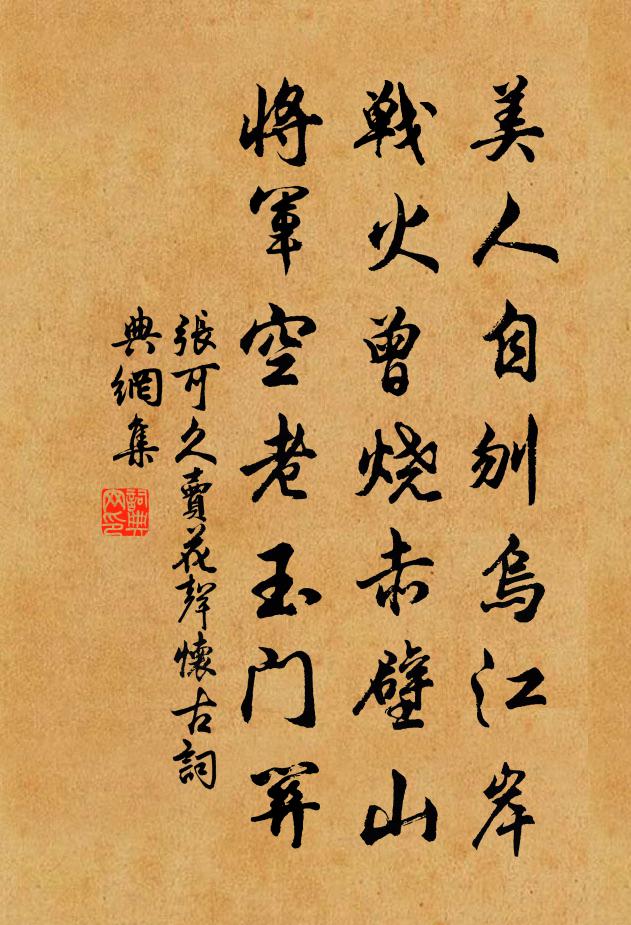 美人自刎烏江岸
戦火曾烧赤壁山
将軍空老玉门关
張可久賣花聲懷古詞
典網集
詞典
网印